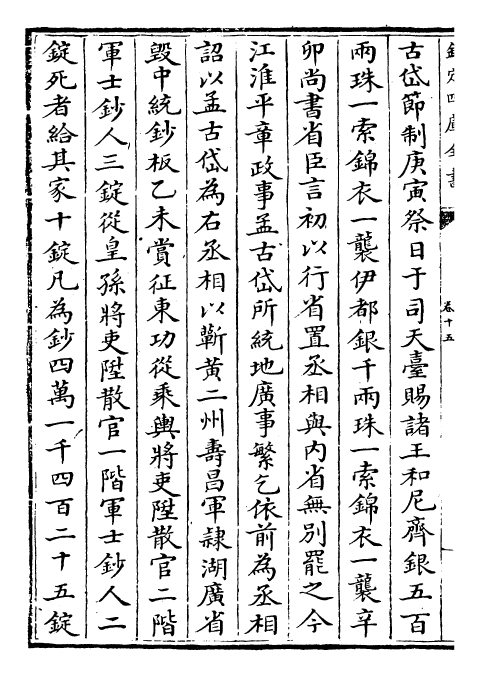 欽定四庫全書
卷十五
古岱節制庚寅祭日于司天臺賜諸王和尼齊銀五百
兩珠一索錦衣一襲伊都銀千兩珠一索錦衣一襲辛
卯尚書省臣言初以行省置丞相與內省無別罷之今
江淮平章政事孟古岱所統地廣事繁乞依前為丞相
詔以孟古岱為右丞相以蘄黃二州壽昌軍隸湖廣省
毀中統鈔板乙未賞征東功從乘輿將吏陞散官二階
軍士鈔人三錠從皇孫將吏陞散官一階軍士鈔人二
錠死者給其家十錠凡為鈔四萬一千四百二十五錠